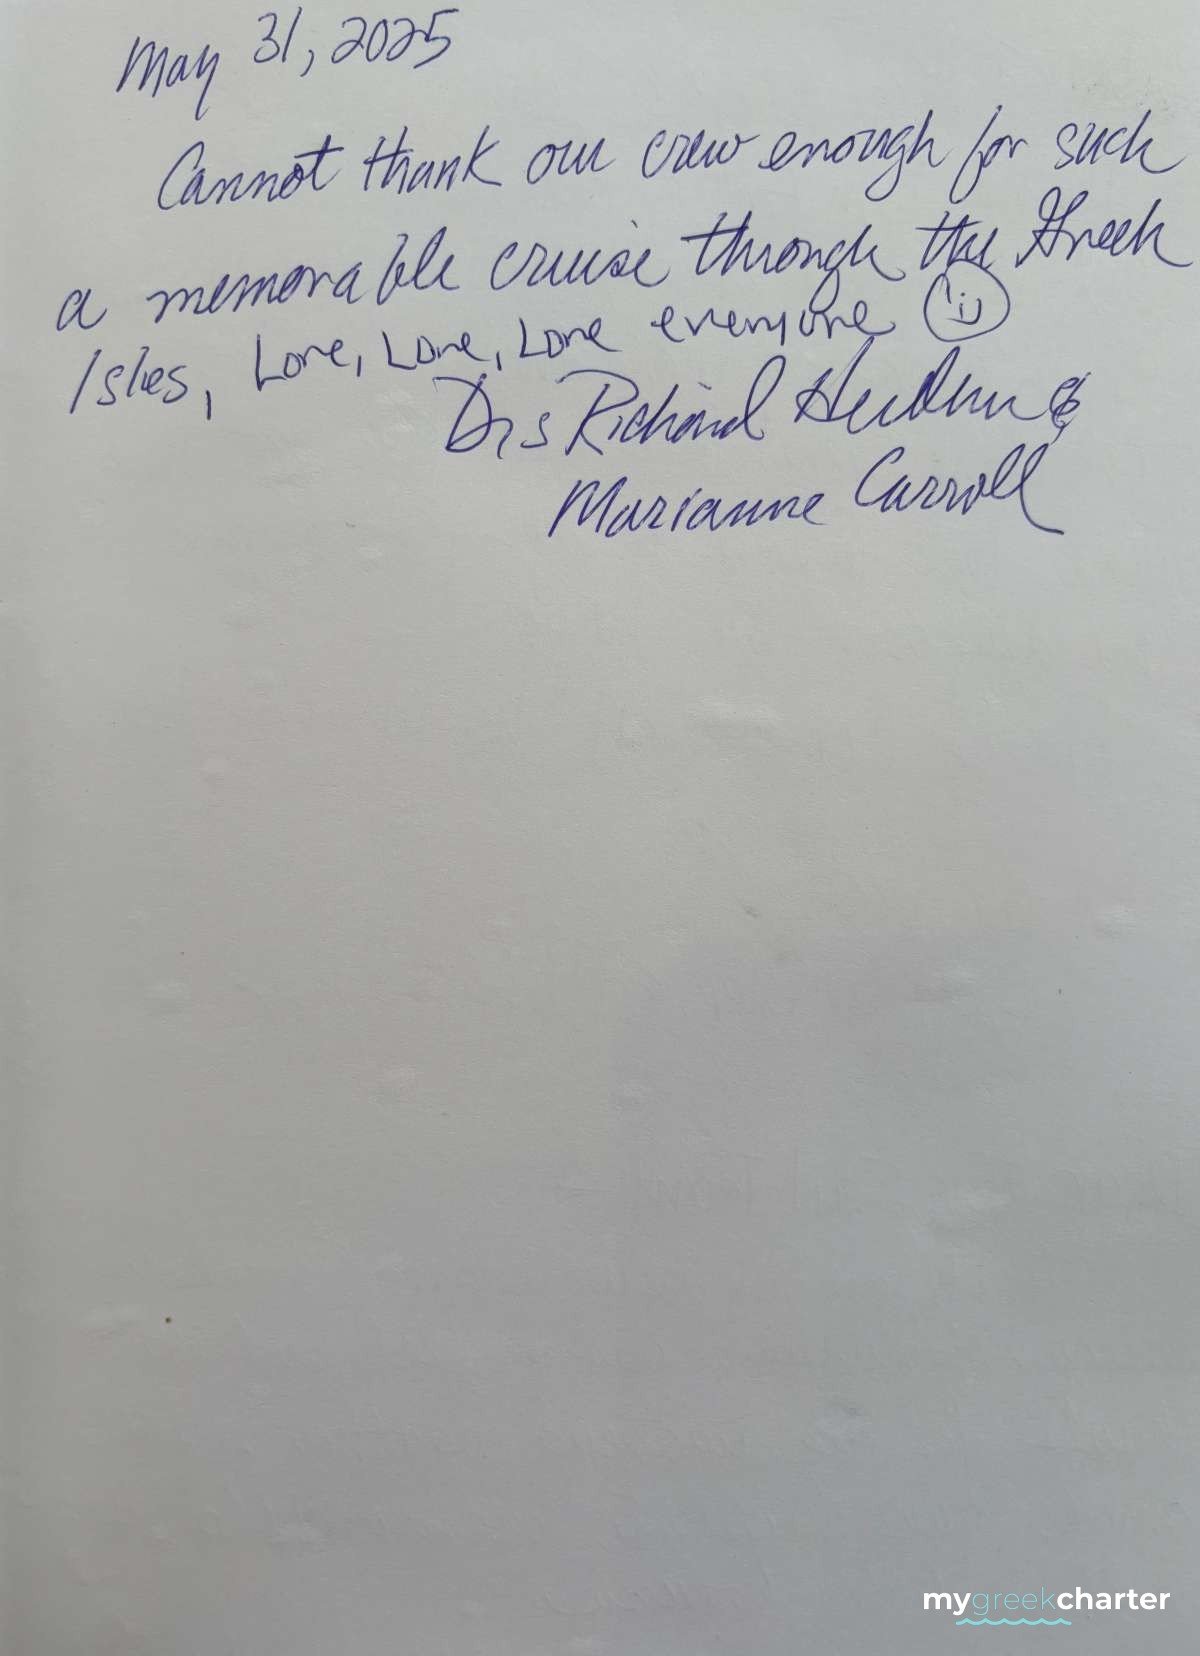 May 31, 2025
Cannot thank our crew enough for such
a memorable cruise through the Greek
Isles, Love, Love, Love everyone
Drs Richard &
Marianne Carroll
mygreekcharter